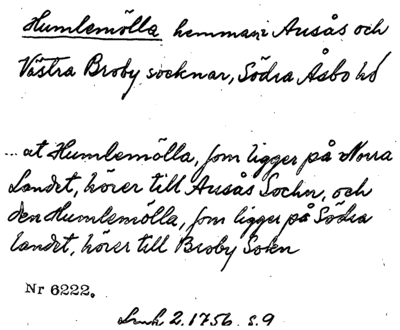 Humlemölla hemman i Ausås och
Västra Broby socknar, Södra Åsbo hd
... at Humlemölla, som ligger på Norra
Landet, hörer till Ausås Sochn, och
den Humlemölla, som ligger på Södra
landet, hörer till Broby Sokn
Nr 6222.
2. 1756 s. 9